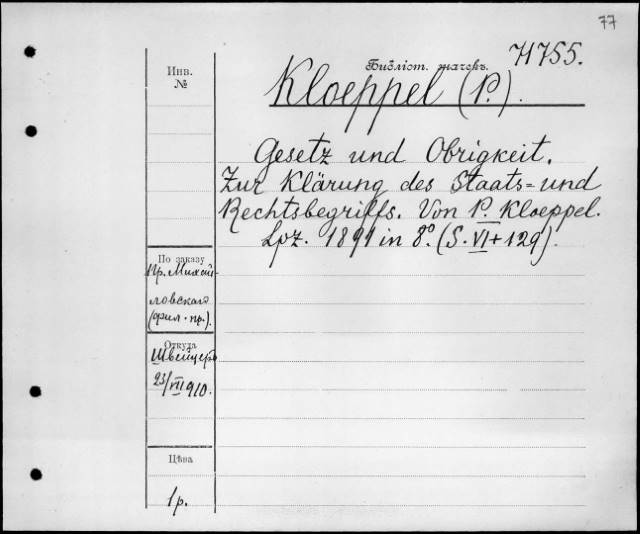 77
Инв.
№
Библіот. значекъ.
71755.
Kloeppel (P.).
Gesetz und Obrigkeit.
Zur Klärung des Staats= und
Rechtsbegriffs. Von P. Kloeppel.
Lpz. 1891 in 8º. (S. VI + 129).
По заказу
Пр. Михай-
ловскаго
(фил. пр.).
Откуда
Швейцеръ
23/VII 910.
Цѣна
1 р.